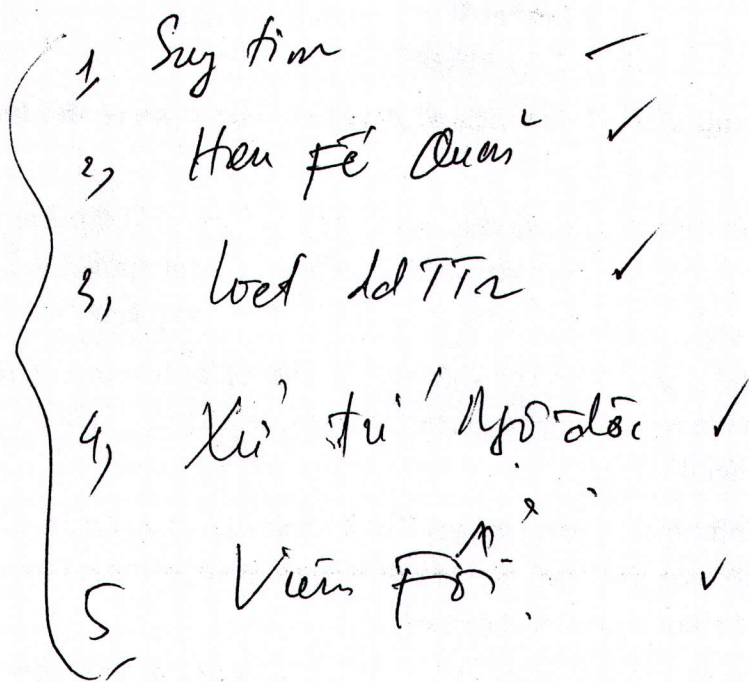 1, Suy tim
2, Hen Fế Quản
3, Loét ddTTr
4, Xử trí Ngộ độc
5, Viêm Fổi